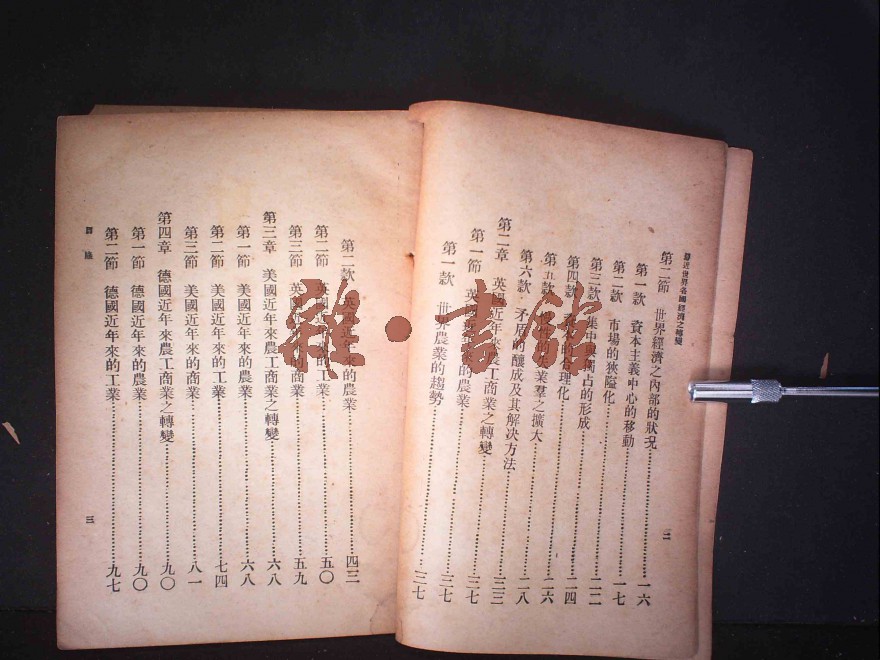 近世界各國經濟之轉變
二
第二節 世界經濟之內部的狀況……一六
第一款 資本主義中心的移動……一六
第二款 市場的狹隘化……一七
第三款 集中與獨占的形成……二二
第四款 的合理化……二四
第五款 業羣之擴大……二六
第六款 矛盾的釀成及其解決方法……二八
第二章 英國近年來農工商業之轉變……三三
第一節 英國近年來的農業……三七
第一款 世界農業的趨勢……三七
第二款 英國近年來的農業……四三
第二節 英國近年來的工業……五〇
第三節 英國近年來的商業……五九
第三章 美國近年來農工商業之轉變……六八
第一節 美國近年來的農業……六八
第二節 美國近年來的工業……七四
第三節 美國近年來的商業……八一
第四章 德國近年來農工商業之轉變……九〇
第一節 德國近年來的農業……九〇
第二節 德國近年來的工業……九七
三
雜·書館